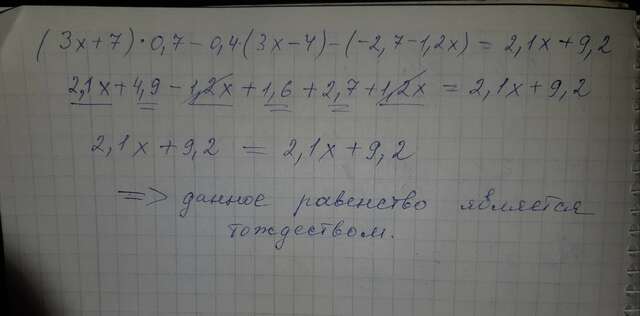 (3x+7)·0,7-0,4·(3x-4)-(-2,7-1,2x)=2,1x+9,2
2,1x+4,9-1,2x+1,6+2,7+1,2x=2,1x+9,2
2,1x+9,2 = 2,1x+9,2
=> данное равенство является
тождеством.